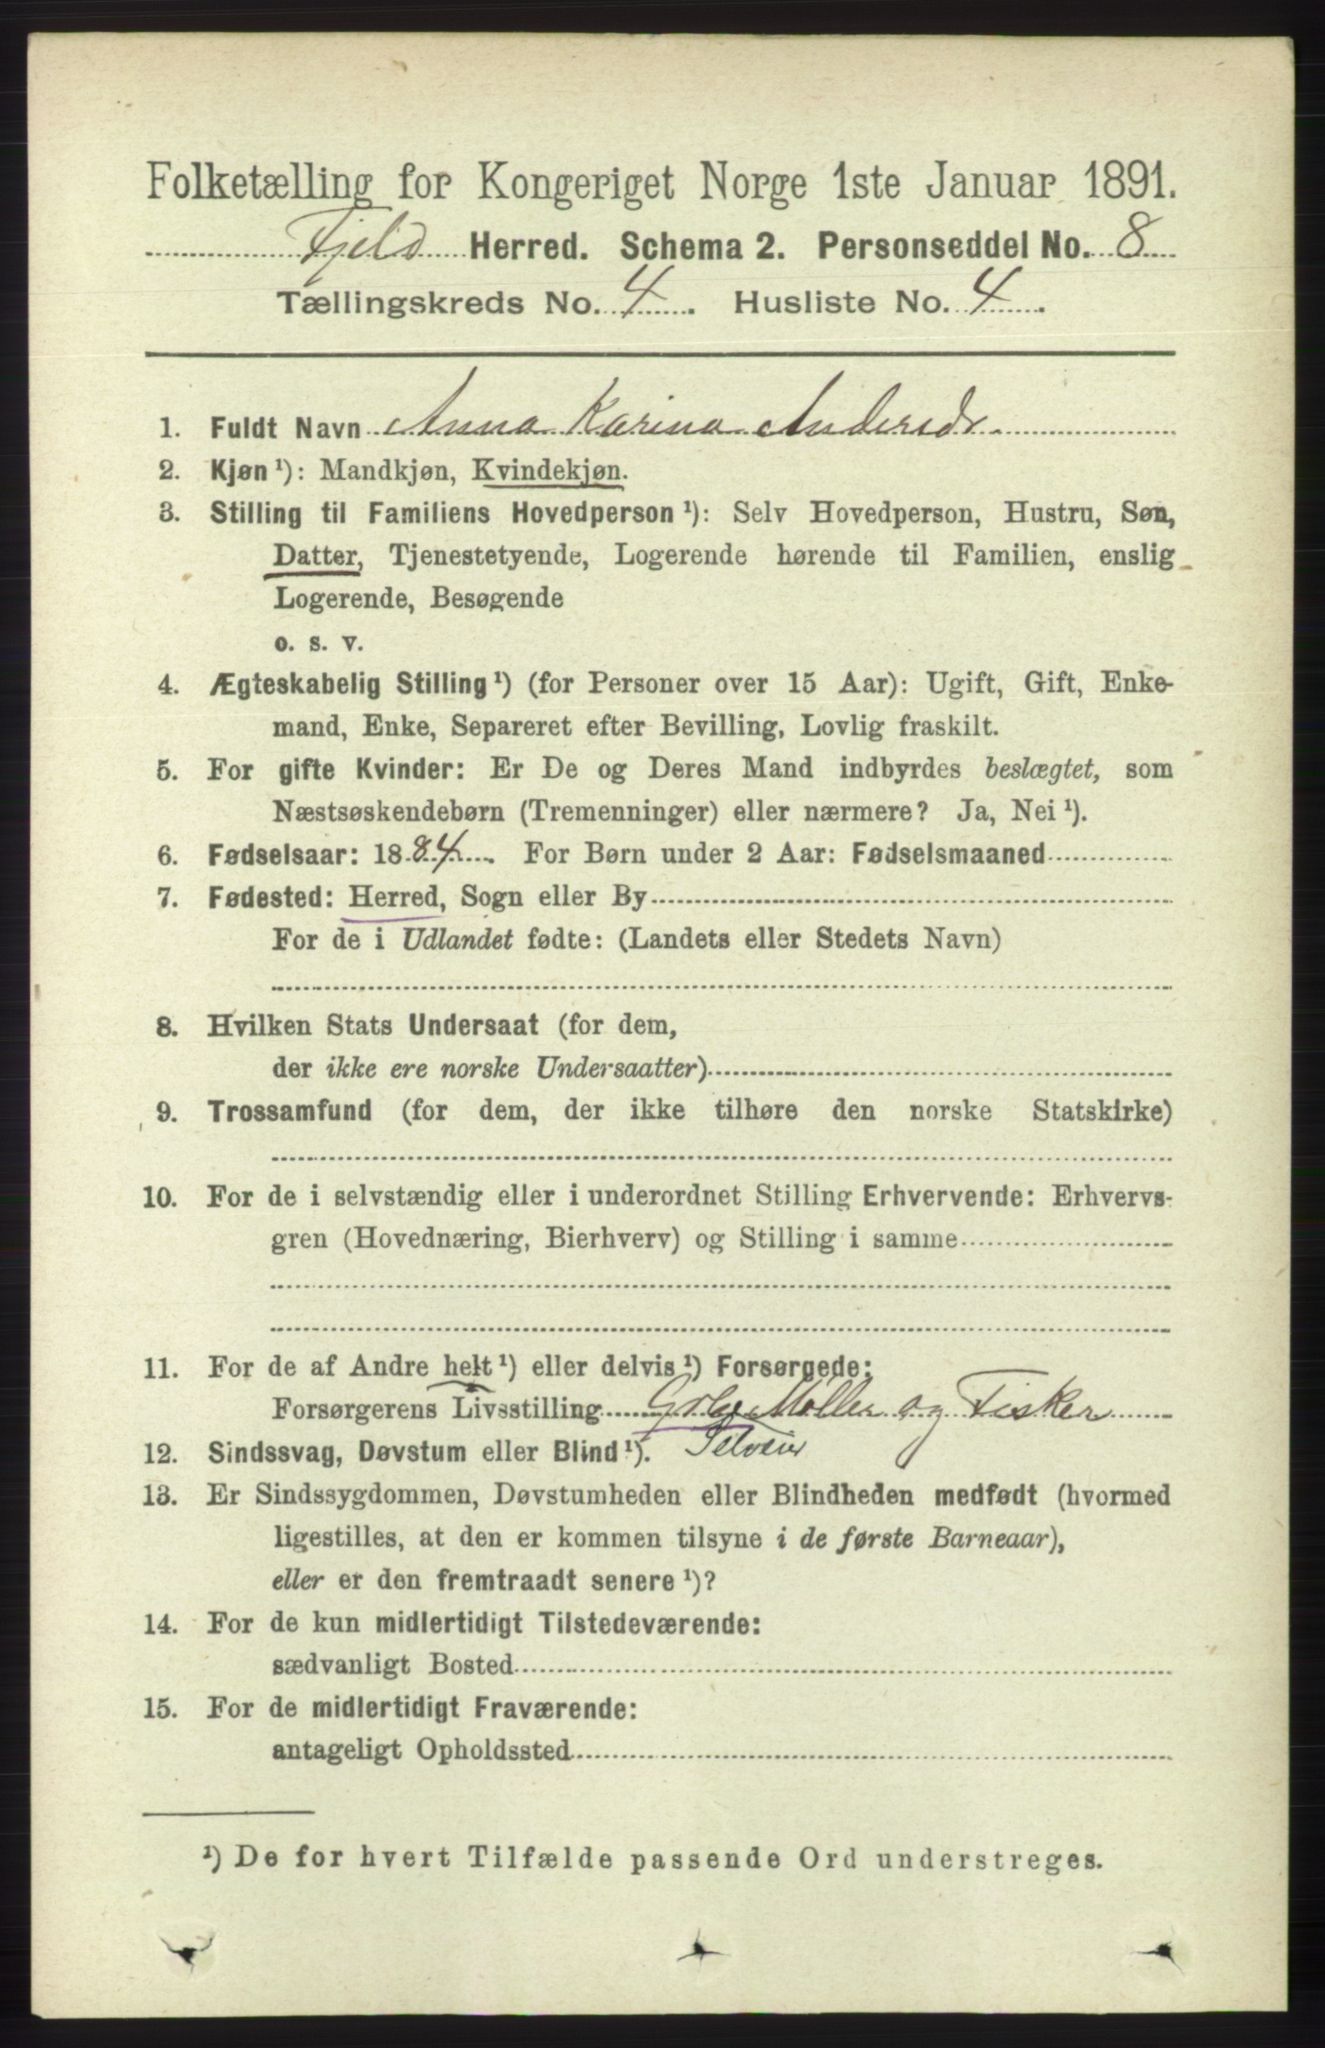 Folketælling for Kongeriget Norge 1ste Januar 1891.
Fjeld Herred. Schema 2. Personseddel No. 8
Tællingskreds No. 4. Husliste No. 4.
1. Fuldt Navn Anna Karina Andersdr
2. Kjøn ¹): Mandkjøn, Kvindekjøn.
3. Stilling til Familiens Hovedperson ¹): Selv Hovedperson, Hustru, Søn,
Datter, Tjenestetyende, Logerende hørende til Familien, enslig
Logerende, Besøgende
o. s. v.
4. Ægteskabelig Stilling ¹) (for Personer over 15 Aar): Ugift, Gift, Enke-
mand, Enke, Separeret efter Bevilling, Lovlig fraskilt.
5. For gifte Kvinder: Er De og Deres Mand indbyrdes beslægtet, som
Næstsøskendebørn (Tremenninger) eller nærmere? Ja, Nei ¹).
6. Fødselsaar: 1884. For Børn under 2 Aar: Fødselsmaaned
7. Fødested: Herred, Sogn eller By
For de i Udlandet fødte: (Landets eller Stedets Navn)
8. Hvilken Stats Undersaat (for dem,
der ikke ere norske Undersaatter)
9. Trossamfund (for dem, der ikke tilhøre den norske Statskirke)
10. For de i selvstændig eller i underordnet Stilling Erhvervende: Erhvervs-
gren (Hovednæring, Bierhverv) og Stilling i samme
11. For de af Andre helt ¹) eller delvis ¹) Forsørgede:
Forsørgerens Livsstilling Grbr Møller og Fisker
12. Sindssvag, Døvstum eller Blind ¹). Selveier
13. Er Sindssygdommen, Døvstumheden eller Blindheden medfødt (hvormed
ligestilles, at den er kommen tilsyne i de første Barneaar),
eller er den fremtraadt senere ¹)?
14. For de kun midlertidigt Tilstedeværende:
sædvanligt Bosted
15. For de midlertidigt Fraværende:
antageligt Opholdssted
¹) De for hvert Tilfælde passende Ord understreges.